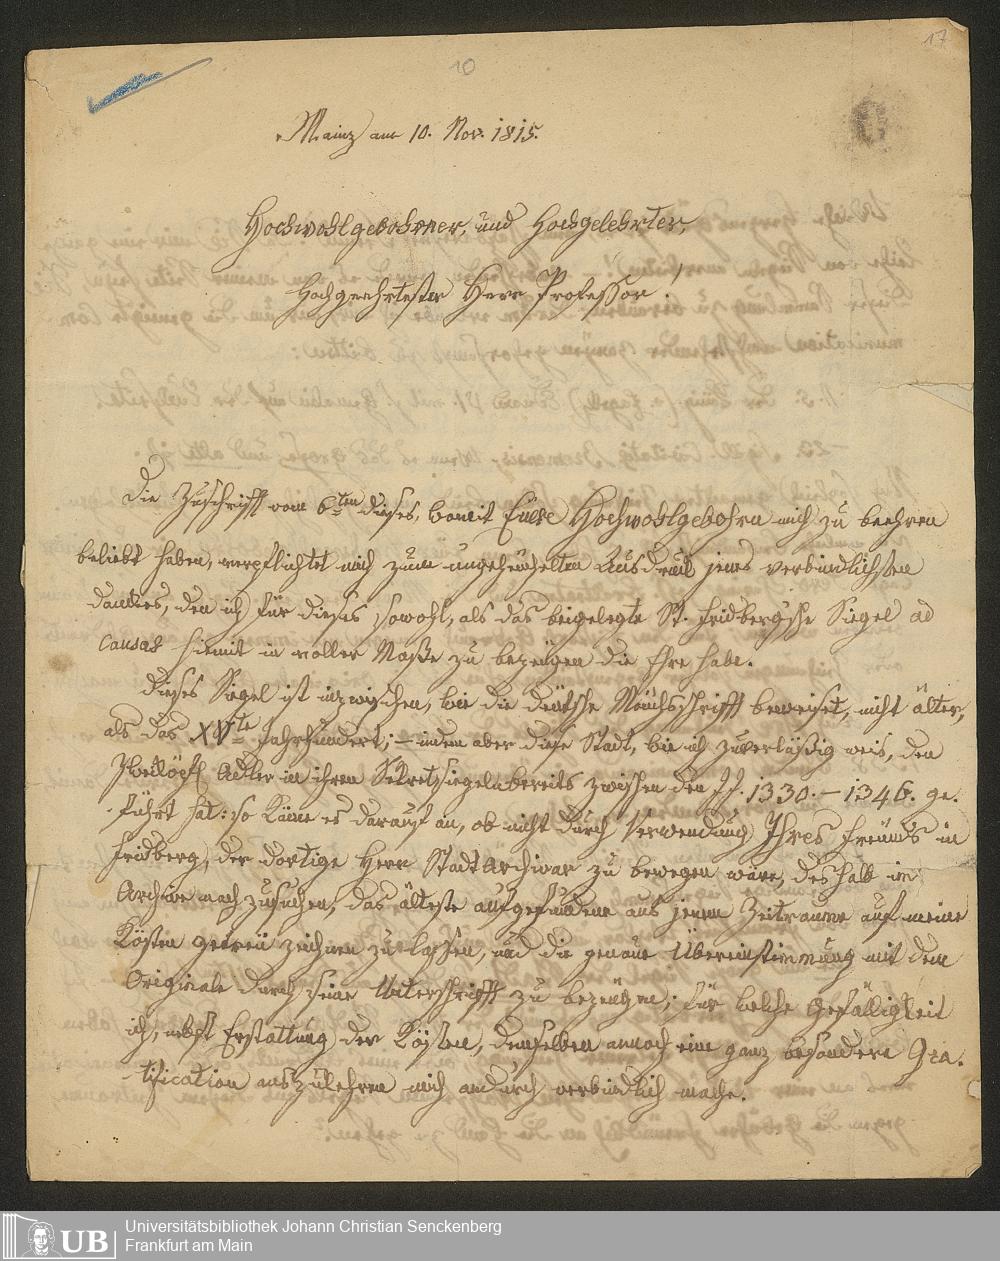 17
10
Mainz am 10. Nov. 1815.
Hochwohlgebohrner, und Hochgelehrter,
Hochgeehrtester Herr Professor!
Die Zuschrifft vom 6ten dieses, womit Eüere Hochwohlgebohrn mich zu beehren
beliebt haben, verpflichtet mich zum ungeheüchelten Ausdruck jenes verbindlichsten
Dankes, den ich für dieses sowohl, als das beigelegte St. Fridbergsche Siegel ad
causas hiemit in voller Maße zu bezeügen die Ehre habe.
Dieses Siegel ist inzwischen, wie die deütsche Mönchsschrifft beweiset, nicht älter,
als das XVte Jahrhundert; – indem aber diese Stadt, wie ich zuverläßig weis, den
Zweiköpf. Adler in ihren Sekretsiegeln bereits zwischen den JJ. 1330. – 1346. ge-
führt hat: so käme es darauf an, ob nicht durch Verwendung Ihres Freünds in
Fridberg, der dortige Herr Stadtarchivar zu bewegen wäre, deshalb im
Archive nachzusuchen, das älteste aufgefundene aus jenem Zeitraume auf meine
Kösten getreü zeichnen zu lassen, und die genaue Übereinstimmung mit dem
Originale durch seine Unterschrifft zu bezeügen; für welche Gefälligkeit
ich, nebst Erstattung der Kösten, demselben annoch eine ganz besondere Gra-
tification auszukehren mich andurch verbindlich mache.
UB
Universitätsbibliothek Johann Christian Senckenberg
Frankfurt am Main